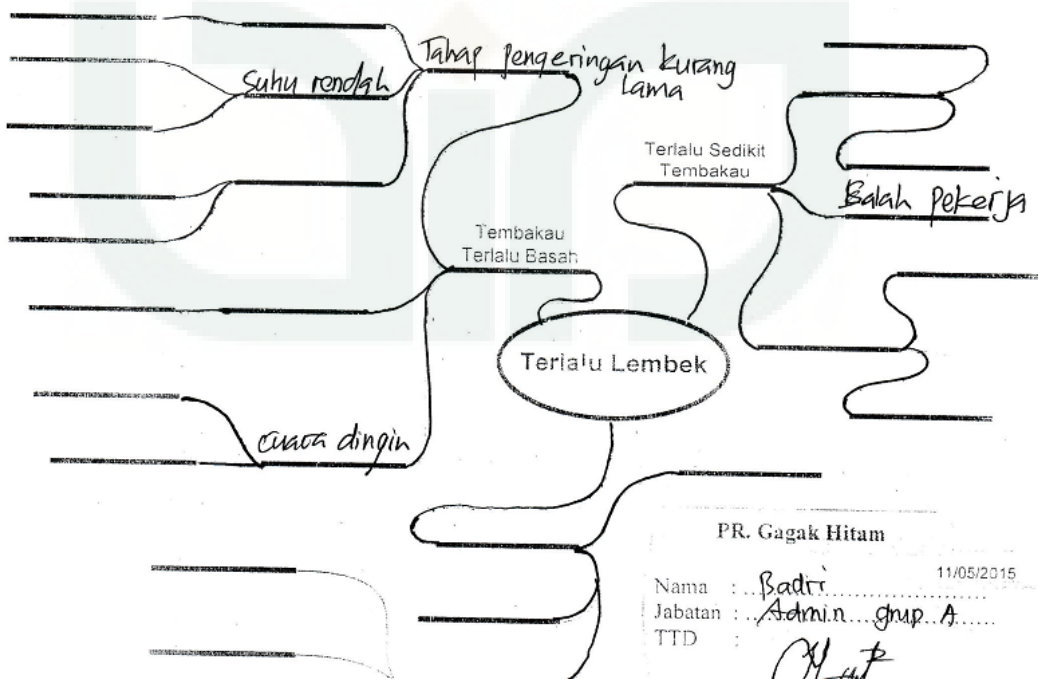 Tahap pengeringan kurang
lama
Suhu rendah
Terlalu Sedikit
Tembakau
Balah pekerja
Tembakau
Terlalu Basah
Terlalu Lembek
cuaca dingin
PR. Gagak Hitam
11/05/2015
Nama : Badri
Jabatan : Admin grup A
TTD :